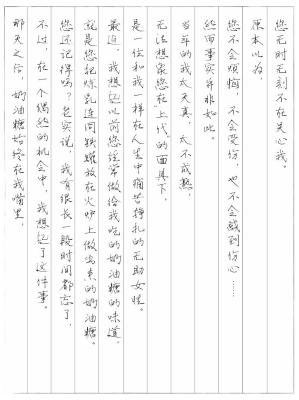 您无时无刻不在关心我。
原本以为，
您不会烦恼，不会受伤，也不会感到伤心……
然而事实并非如此。
当年的我太天真，太不成熟，
无法想象您在“上代”的面具下，
是一位和我一样在人生中痛苦挣扎的无助女性。
最近，我想起以前您经常做给我吃的奶油糖的味道，
就是您把炼乳连同铁罐放在火炉上做出来的奶油糖。
您还记得吗？老实说，我有很长一段时间都忘了，
不过，在一个偶然的机会中，我想起了这件事。
那天之后，奶油糖始终在我嘴里，